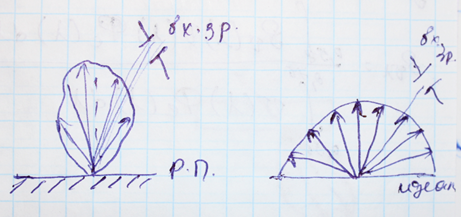 вх. зр.
Р.П.
вх.
зр.
идеал